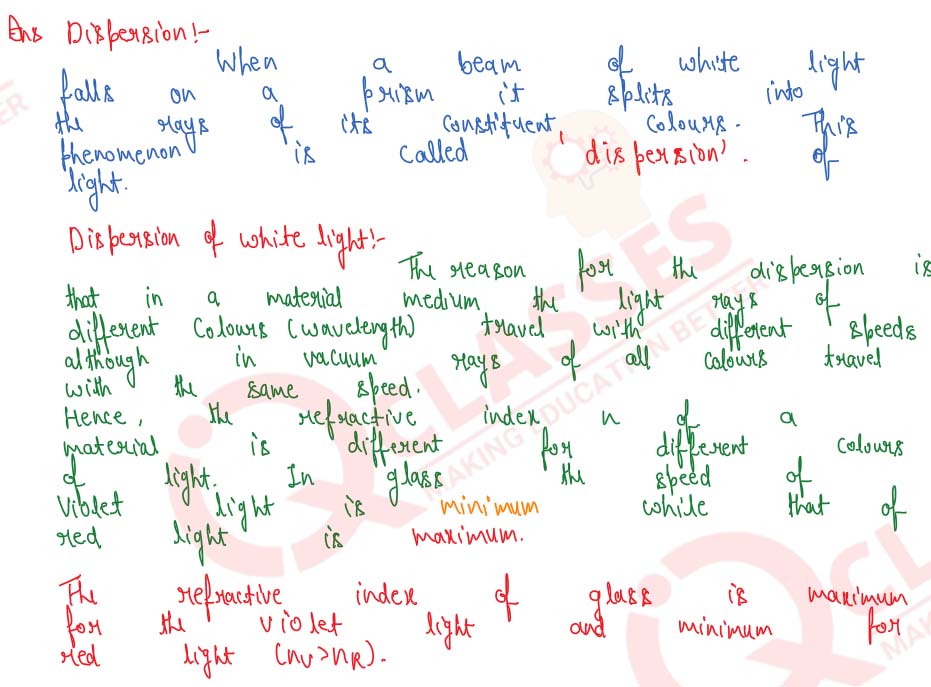 Ans Dispersion:-
When a beam of white light
falls on a prism it splits into
the rays of its constituent colours. This
phenomenon is called 'dispersion'. of
light.
Dispersion of white light:-
The reason for the dispersion is
that in a material medium the light rays of
different Colours (wavelength) travel with different speeds
although in vacuum rays of all colours travel
with the same speed.
Hence, the refractive index n of a
material is different for different colours
of light. In glass the speed of
Violet light is minimum while that of
red light is maximum.
The refractive index of glass is maximum
for the violet light and minimum for
red light (nv>nR).
IQ CLASSES
MAKING EDUCATION BETTER